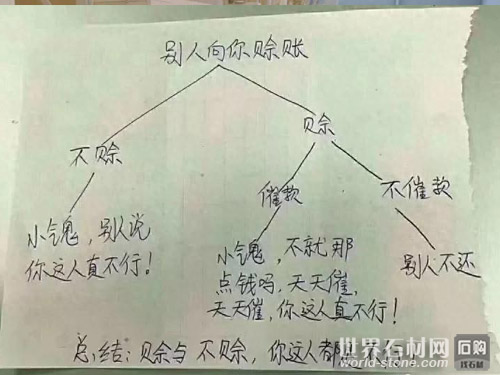 别人向你赊账
不赊
赊
催款
不催款
小气鬼，别人说
你这人真不行！
小气鬼，不就那
点钱吗，天天催，
天天催，你这人真不行！
别人不还
总结：赊与不赊，你这人都
世界石材网
world-stone.com
石购
找石材